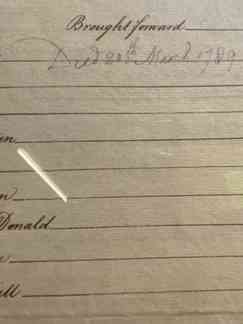 Brought forward
Died 20th March 1789
en
n
Donald
ell